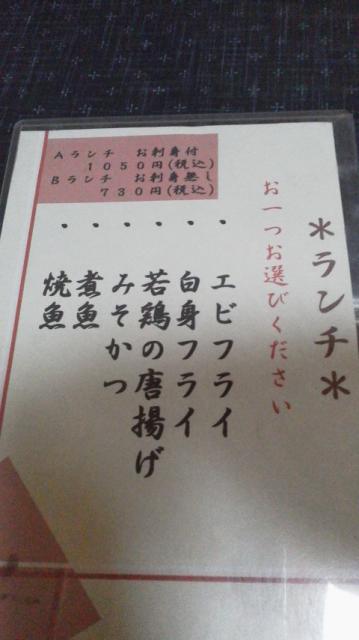 ＊ランチ＊
お一つお選びください
・エビフライ
・白身フライ
・若鶏の唐揚げ
・みそかつ
・煮魚
・焼魚
Aランチ　お刺身付
１０５０円(税込)
Bランチ　お刺身無し
７３０円(税込)